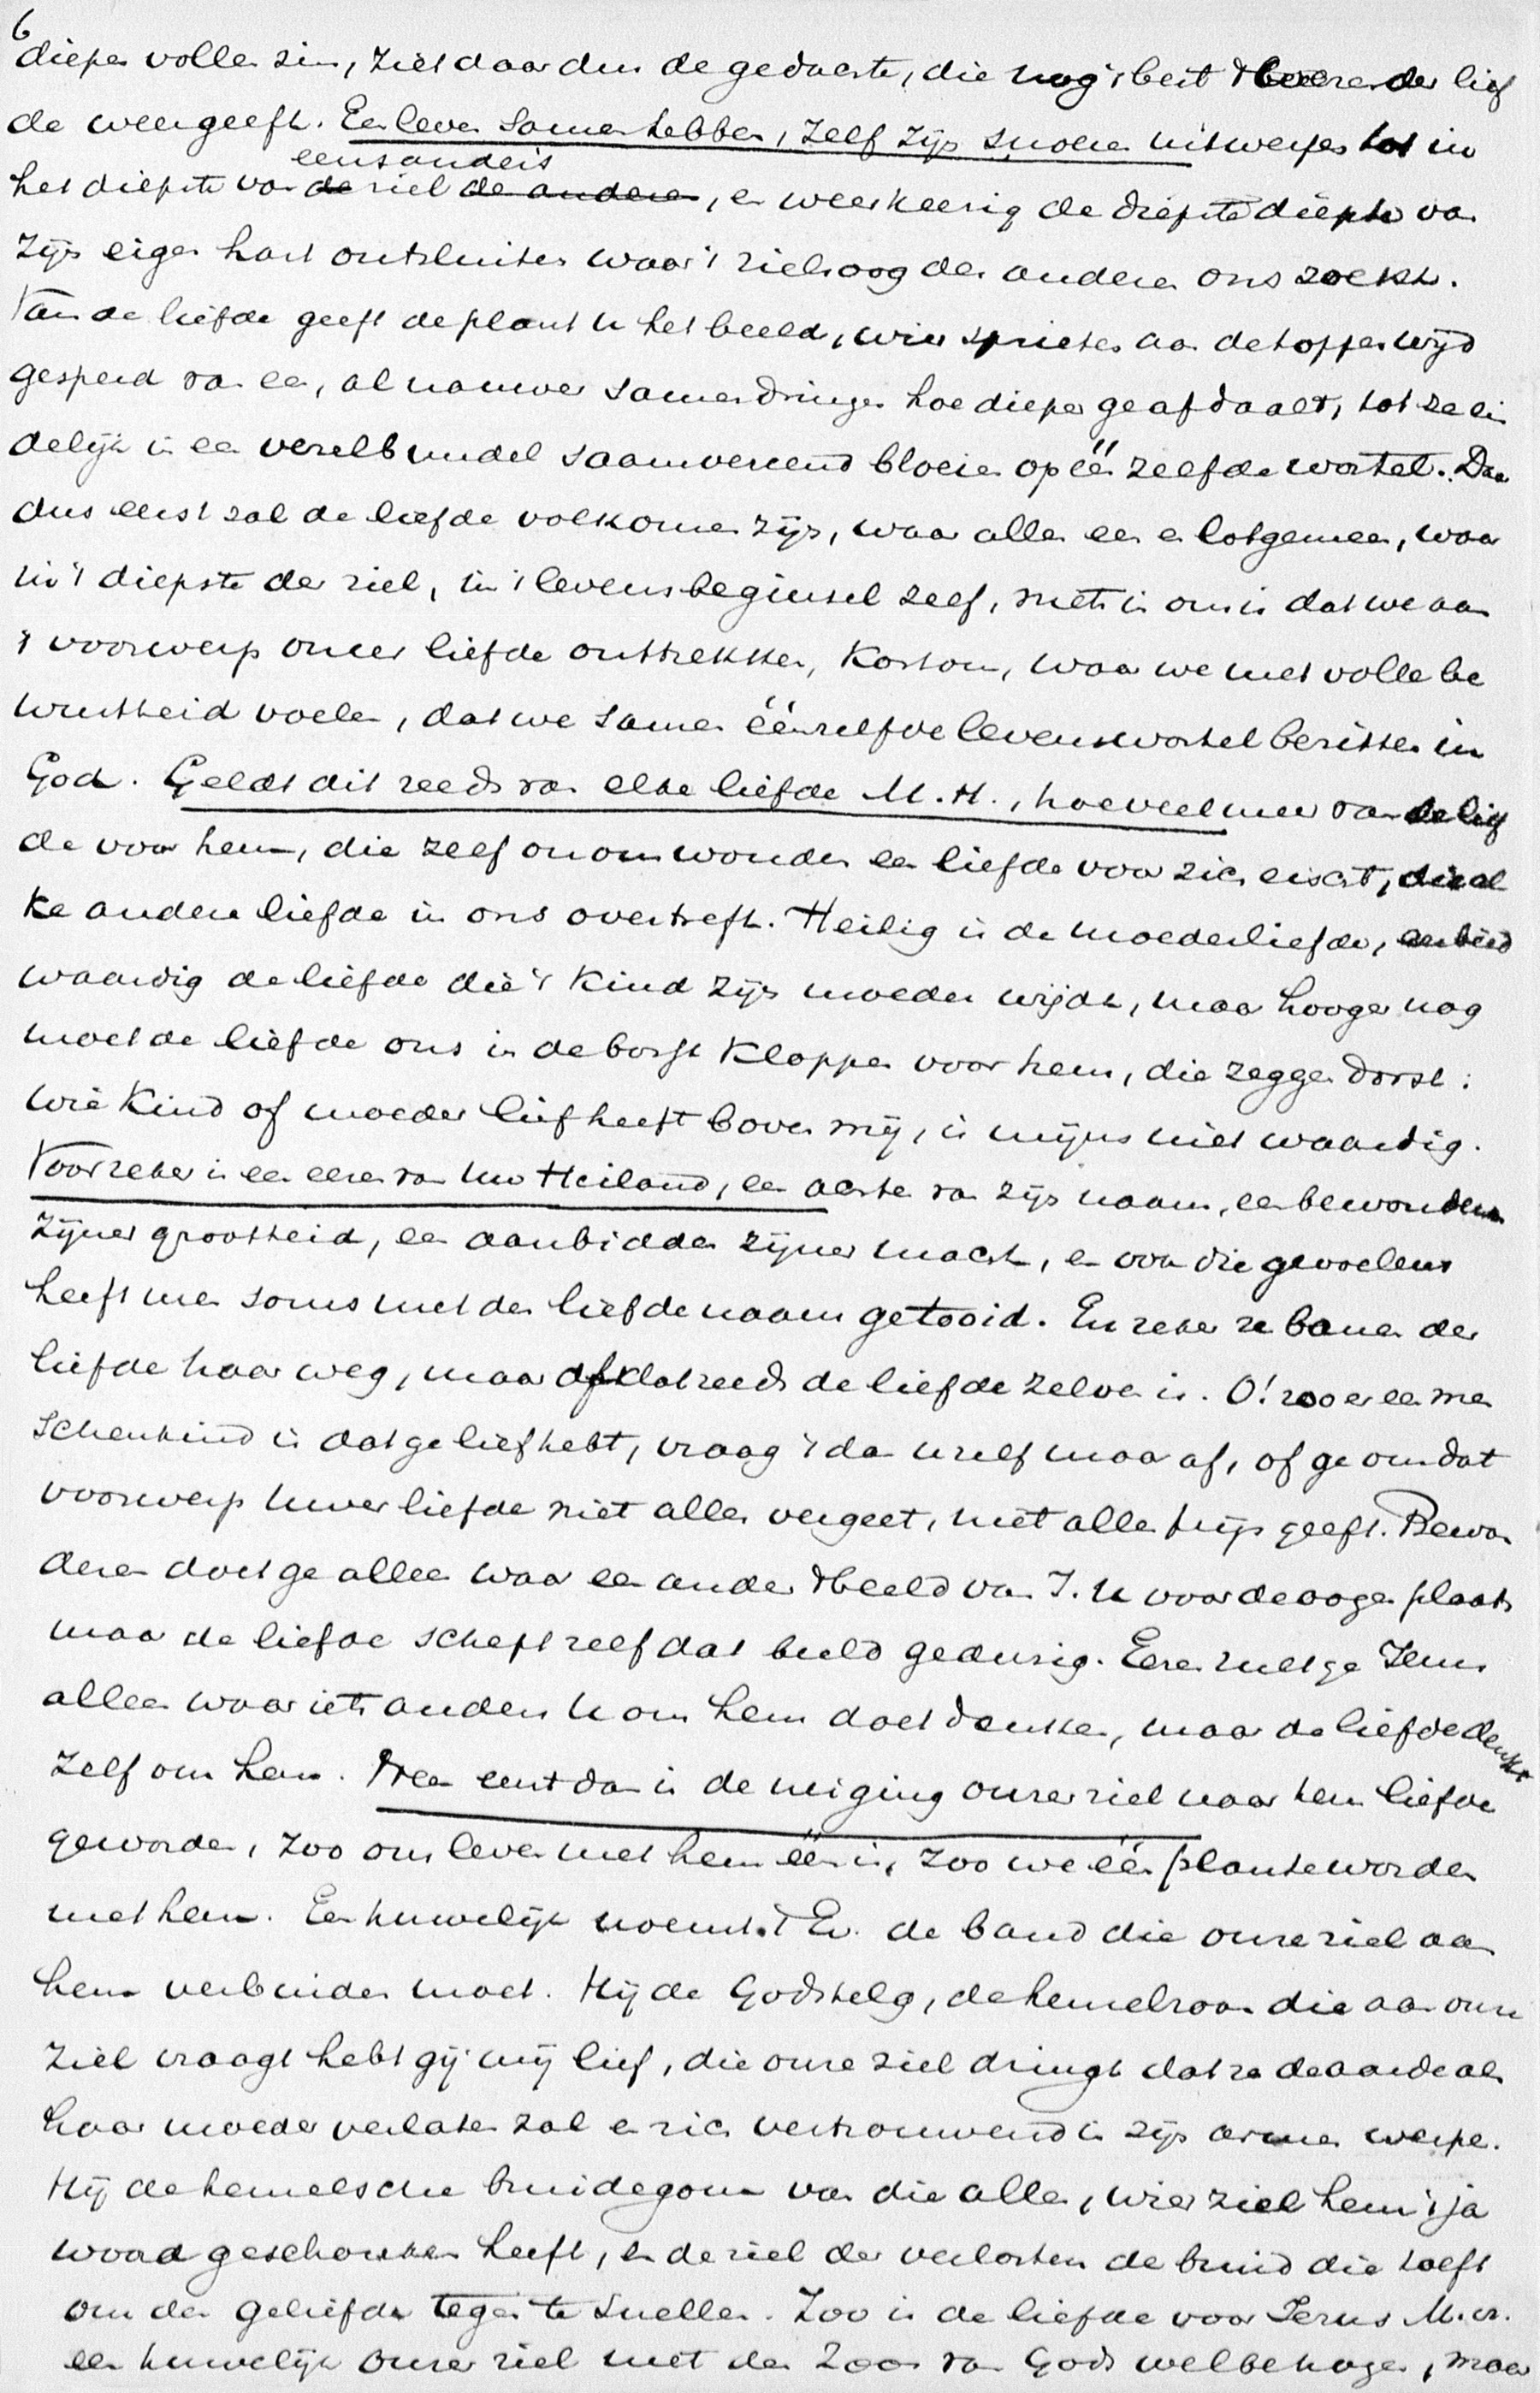 6
diepen vollen zin, ziet daar dus de gedachte, die nog 't best 't weeren der lief
de weergeeft. Een leven samen hebben, zelf zijn snoeren uitwerpen tot in
eens anders
het diepste van de ziel de anderen, en weerkeerig de diepste diepte van
zijn eigen hart ontsluiten waar 't zielsoog der anderen ons zoekt.
Van de liefde geeft de plant u het beeld, wier sprieten aan de toppen wijd
gesperd van een, al nauwer samendringen hoe dieper ge afdaalt, tot ze ein
delijk in een vezelbundel saamvereend bloeien op één zelfde wortel. Daar
dus eerst zal de liefde volkomen zijn, waar alles een en lotgemeen, waar
in 't diepste der ziel, in 't levensbeginsel zelf, niets in ons is dat we aan
't voorwerp onzer liefde onttrekken, kortom, waar we met volle be
wustheid voelen, dat we samen éénzelfde levenswortel bezitten in
God. Geldt dit reeds van elke liefde M.H., hoeveel meer van de lief
de voor hem, die zelf onomwonden een liefde voor zich eischt, die el
ke andere liefde in ons overtreft. Heilig is de moederliefde, eerbied
waardig de liefde die 't kind zijn moeder wijdt, maar hooger nog
moet de liefde ons in de borst kloppen voor hem, die zeggen dorst:
wie kind of moeder lief heeft boven mij, is mijns niet waardig.
Voorzeker is een eeren van uw Heiland, een achten van zijn naam, een bewonderen
zijner grootheid, een aanbidden zijner macht, en ook die gevoelens
heeft men soms met den liefdenaam getooid. En zeker ze banen der
liefde haar weg, maar of dat reeds de liefde zelve is. O! zoo er een men
schenkind is dat ge liefhebt, vraag 't dan uzelf maar af, of ge om dat
voorwerp uwer liefde niet alles vergeet, niet alles prijs geeft. Bewon
deren doet ge alleen waar een ander 't beeld van J. u voor de oogen plaats
maar de liefde schept zelf dat beeld gedurig. Eeren zult ge Jezus
alleen waar iets anders u om hem doet denken, maar de liefde denkt
zelf om hem. Neen eerst dan is de neiging onzer ziel naar hem liefde
geworden, zoo ons leven met hem één is, zoo we één plante worden
met hem. Een huwelijk noemt 't Ev. de band die onze ziel aan
hem verbinden moet. Hij de Godstelg, de hemelzoon die aan onze
ziel vraagt hebt gij mij lief, die onze ziel dringt dat ze de aarde als
haar moeder verlaten zal en zich vertrouwend in zijn armen werpe.
Hij de hemelsche bruidegom van die allen, wier ziel hem 't ja
woord geschonken heeft, en de ziel der verlosten de bruid die toeft
om den geliefde tegen te snellen. Zoo is de liefde voor Jezus M.H.
een huwelijk onzer ziel met den Zoon van Gods welbehagen, maar